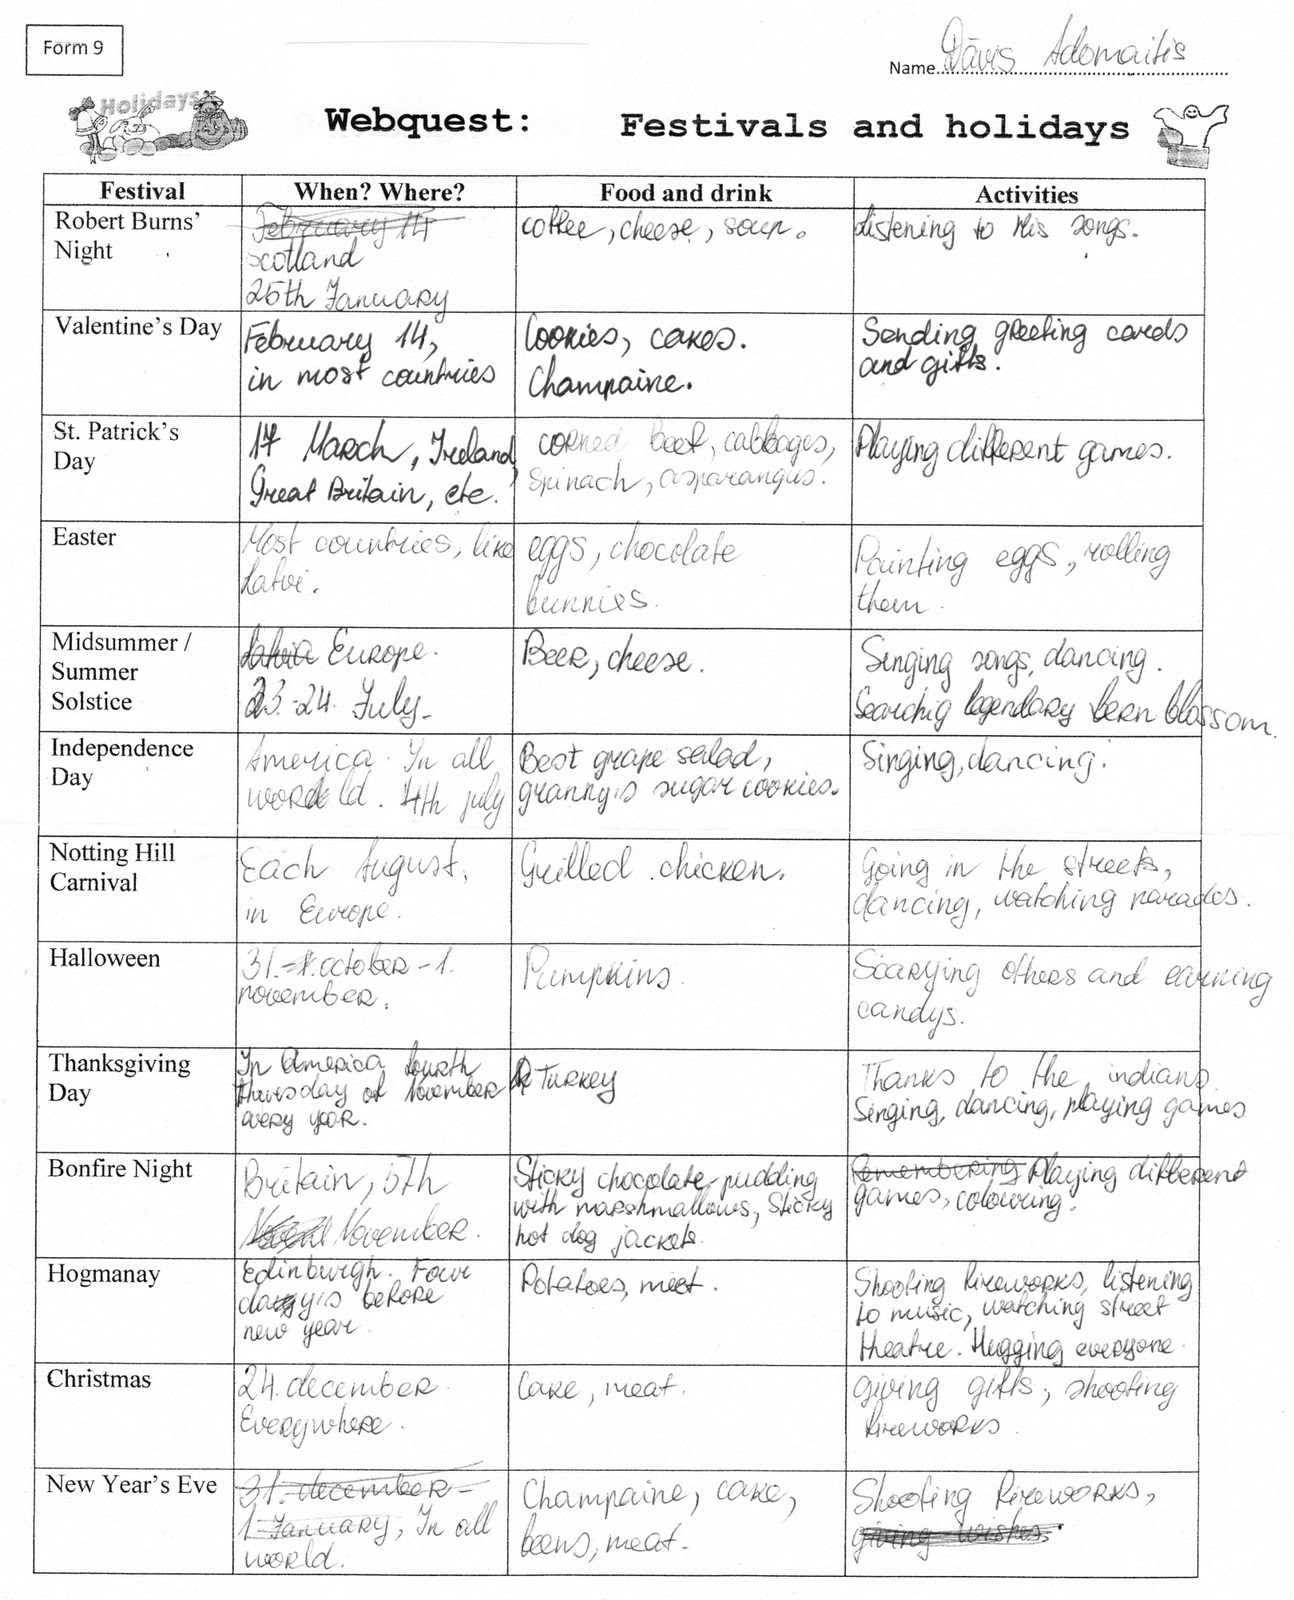 Form 9
Name Dāvis Adomaitis
Holidays
Webquest: Festivals and holidays
Festival When? Where? Food and drink Activities
Robert Burns'
Night
February 14
scotland
25th January
coffee, cheese, soup.
Listening to his songs.
Valentine's Day
February 14,
in most countries
Cookies, cakes.
Champaine.
Sending greeting cards
and gifts.
St. Patrick's
Day
17 March, Ireland,
Great Britain, etc.
corned beef, cabbages,
spinach, asparangus.
Playing different games.
Easter
Most countries, like
Latvi.
eggs, chocolate
bunnies.
Painting eggs, rolling
them.
Midsummer /
Summer
Solstice
Latvia Europe.
23.-24. July.
Beer, cheese.
Singing songs, dancing.
Searchig legendary fern blossom.
Independence
Day
America. In all
world. 4th july
Best grape salad,
granny's sugar cookies.
Singing, dancing.
Notting Hill
Carnival
Each August,
in Europe.
Grilled chicken.
Going in the streets,
dancing, watching parades.
Halloween
31. october - 1.
november.
Pumpkins.
Scarying others and earning
candys.
Thanksgiving
Day
In America fourth
thursday of November
every year.
Turkey
Thanks to the indians.
Singing, dancing, playing games
Bonfire Night
Britain, 5th
November.
Sticky chocolate pudding
with marshmallows, sticky
hot dog jackets.
Remembering Playing different
games, colouring.
Hogmanay
Edinburgh. Four
day's before
new year.
Potatoes, meet.
Shooting fireworks, listening
to music, watching street
theatre. Hugging everyone.
Christmas
24. december.
Everywhere.
Cake, meat.
giving gifts, shooting
fireworks.
New Year's Eve
31. december -
1 January, In all
world.
Champaine, cake,
beens, meat.
Shooting fireworks,
giving wishes.